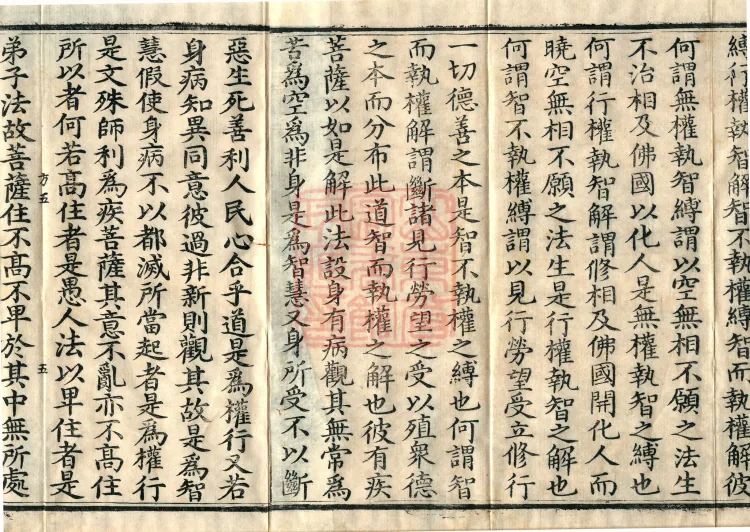 縛行權執智解彼有智不執權縛智而執權解彼
何謂無權執智縛謂以空無相不願之法生
不治相及佛國以化人是無權執智之縛也
何謂行權執智解謂修相及佛國開化人而
曉空無相不願之法生是行權執智之解也
何謂智不執權縛謂以見行勞望受立修行
一切德善之本是智不執權之縛也何謂智
而執權解謂斷諸見行勞望之受以殖衆德
之本而分布此道智而執權之解也彼有疾
菩薩以如是解此法設身有病觀其無常爲
苦爲空爲非身是爲智慧又身所受不以斷
惡生死善利人民心合乎道是爲權行又若
身病知異同意彼過非新則觀其故是爲智
慧假使身病不以都滅所當起者是爲權行
是文殊師利爲疾菩薩其意不亂亦不高住
所以者何若高住者是愚人法以卑住者是
方五 五
弟子法故菩薩住不高不卑於其中無所處